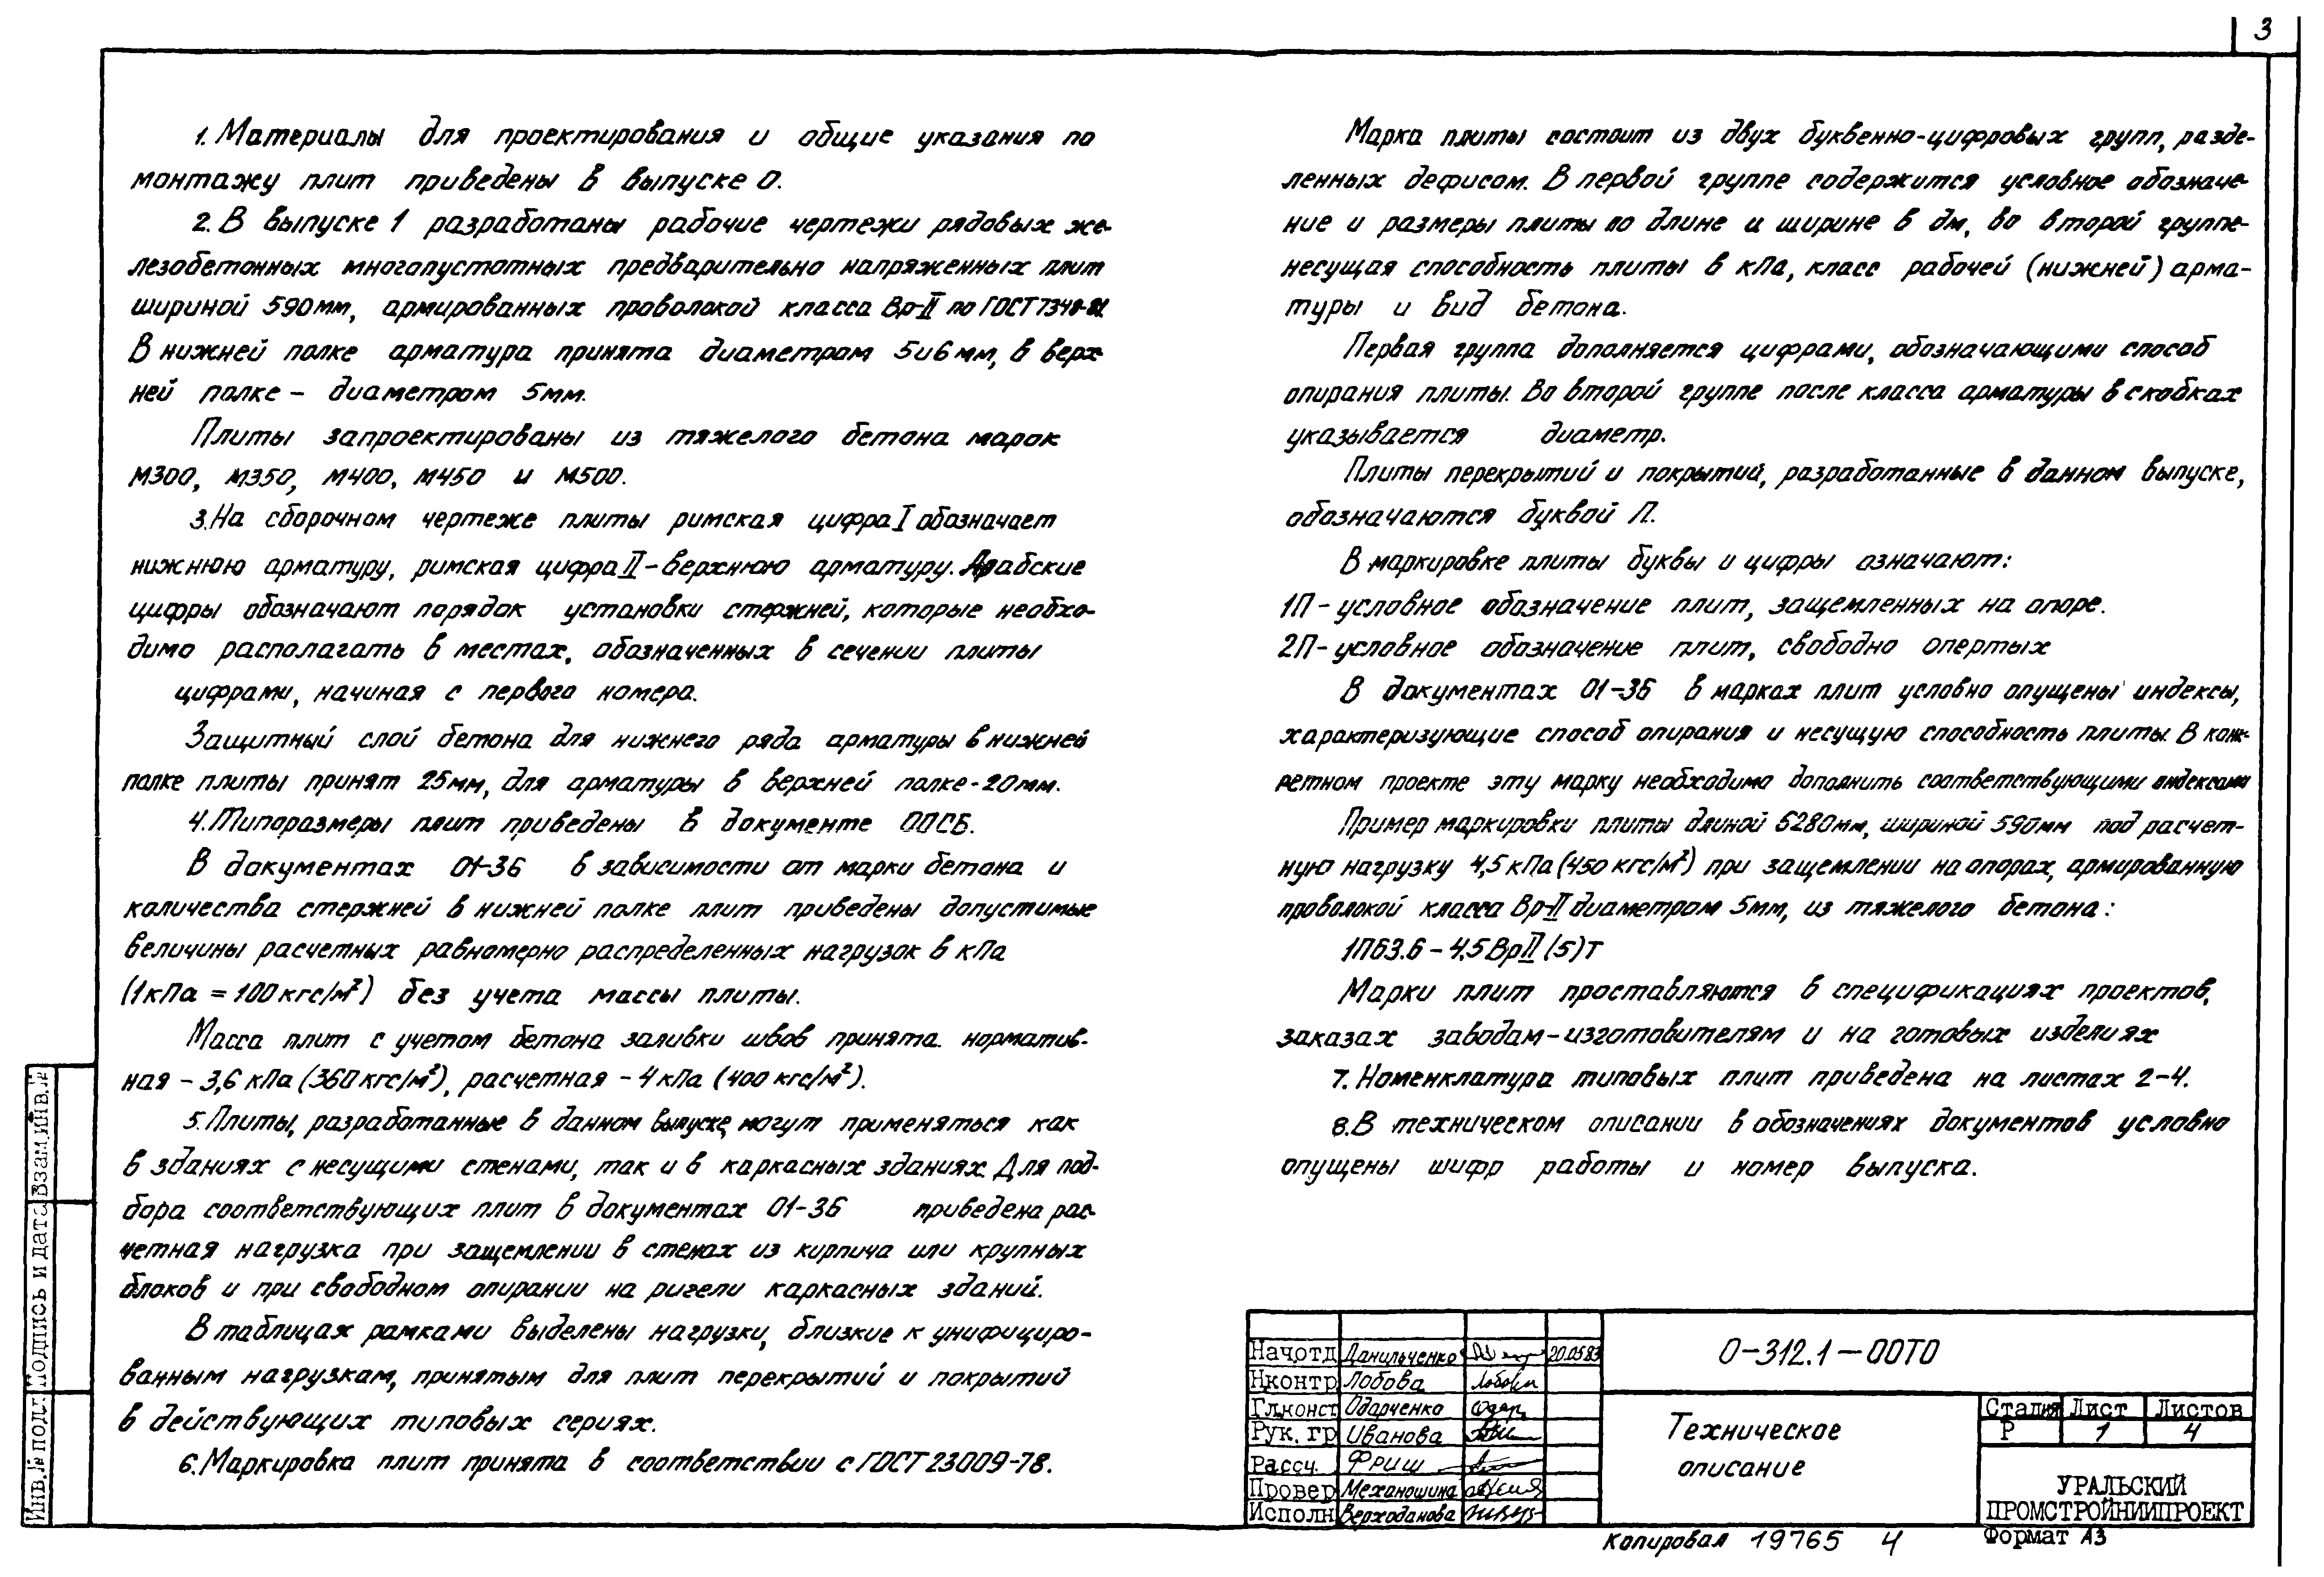 3
1. Материалы для проектирования и общие указания по
монтажу плит приведены в выпуске 0.
2. В выпуске 1 разработаны рабочие чертежи рядовых же-
лезобетонных многопустотных предварительно напряженных плит
шириной 590мм, армированных проволокой класса Вр-II по ГОСТ 7348-81.
В нижней полке арматура принята диаметром 5 и 6 мм, в верх-
ней полке - диаметром 5мм.
Плиты запроектированы из тяжелого бетона марок
М300, М350, М400, М450 и М500.
3. На сборочном чертеже плиты римская цифра I обозначает
нижнюю арматуру, римская цифра II - верхнюю арматуру. Арабские
цифры обозначают порядок установки стержней, которые необхо-
димо располагать в местах, обозначенных в сечении плиты
цифрами, начиная с первого номера.
Защитный слой бетона для нижнего ряда арматуры в нижней
полке плиты принят 25мм, для арматуры в верхней полке - 20мм.
4. Типоразмеры плит приведены в документе 00СБ.
В документах 01-36 в зависимости от марки бетона и
количества стержней в нижней полке плит приведены допустимые
величины расчетных равномерно распределенных нагрузок в кПа
(1кПа = 100кгс/м²) без учета массы плиты.
Масса плит с учетом бетона заливки швов принята: норматив-
ная - 3,6 кПа (360кгс/м²), расчетная - 4 кПа (400 кгс/м²).
5. Плиты, разработанные в данном выпуске, могут применяться как
в зданиях с несущими стенами, так и в каркасных зданиях. Для под-
бора соответствующих плит в документах 01-36 приведена рас-
четная нагрузка при защемлении в стенах из кирпича или крупных
блоков и при свободном опирании на ригели каркасных зданий.
В таблицах рамками выделены нагрузки, близкие к унифициро-
ванным нагрузкам, принятым для плит перекрытий и покрытий
в действующих типовых сериях.
6. Маркировка плит принята в соответствии с ГОСТ 23009-78.
Марка плиты состоит из двух буквенно-цифровых групп, разде-
ленных дефисом. В первой группе содержится условное обозначе-
ние и размеры плиты по длине и ширине в дм, во второй группе-
несущая способность плиты в кПа, класс рабочей (нижней) арма-
туры и вид бетона.
Первая группа дополняется цифрами, обозначающими способ
опирания плиты. Во второй группе после класса арматуры в скобках
указывается диаметр.
Плиты перекрытий и покрытий, разработанные в данном выпуске,
обозначаются буквой П.
В маркировке плиты буквы и цифры означают:
1П - условное обозначение плит, защемленных на опоре.
2П - условное обозначение плит, свободно опертых
В документах 01-36 в марках плит условно опущены индексы,
характеризующие способ опирания и несущую способность плиты. В конк-
ретном проекте эту марку необходимо дополнить соответствующими индексами
Пример маркировки плиты длиной 6280мм, шириной 590мм под расчет-
ную нагрузку 4,5 кПа (450 кгс/м²) при защемлении на опорах, армированную
проволокой класса Вр-II диаметром 5мм, из тяжелого бетона:
1П63.6 - 4,5 ВрII (5)Т
Марки плит проставляются в спецификациях проектов,
заказах заводам-изготовителям и на готовых изделиях
7. Номенклатура типовых плит приведена на листах 2-4.
8. В техническом описании в обозначениях документов условно
опущены шифр работы и номер выпуска.
Взам.инв.№
Подпись и дата
Инв.№ подл.
Нач.отд Данильченко 20.05.83
Н.контр Лобова
Гл.конст Одарченко
Рук. гр Иванова
Рассч. Фриш
Провер Механошина
Исполн Верходанова
0-312.1-00ТО
Техническое
описание
Стадия Лист Листов
Р 1 4
УРАЛЬСКИЙ
ПРОМСТРОЙНИИПРОЕКТ
Копировал 19765 4
Формат А3